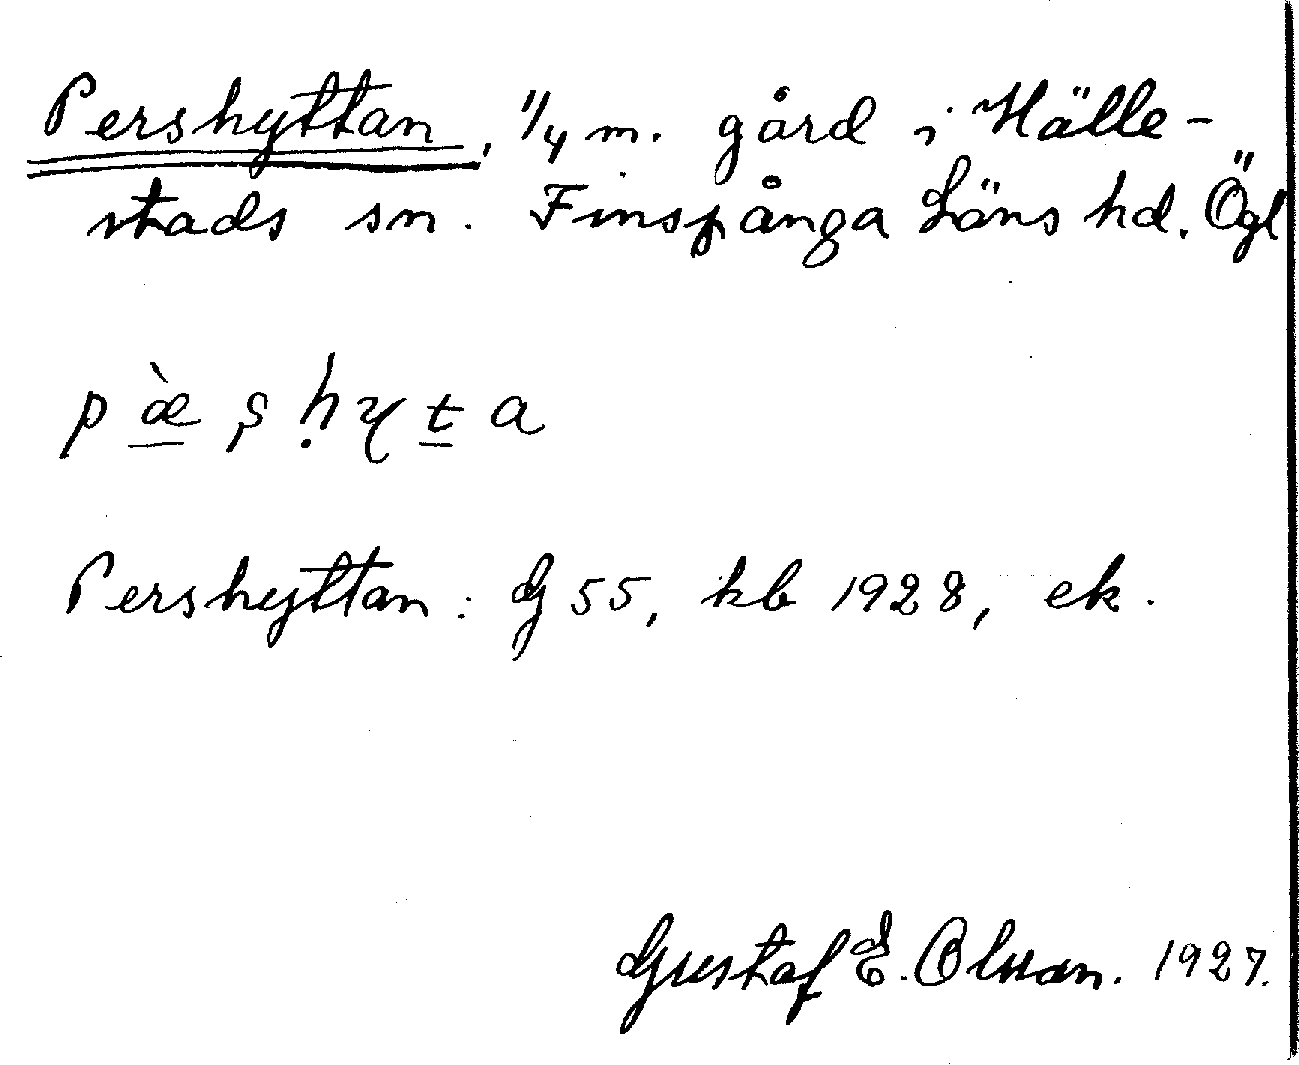 Pershyttan, 1/4 m. gård i Hälle-
stads sn. Finspånga Läns hd. Ögl
pæ̀ş ḥyṯa
Pershyttan: G 55, kb 1928, ek.
Gustaf E. Olsson. 1927.